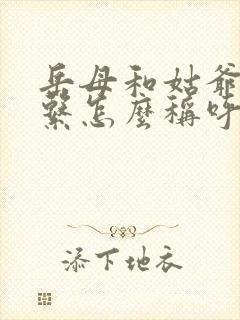 岳母和姑爷
繫怎麼稱呼
添下地衣